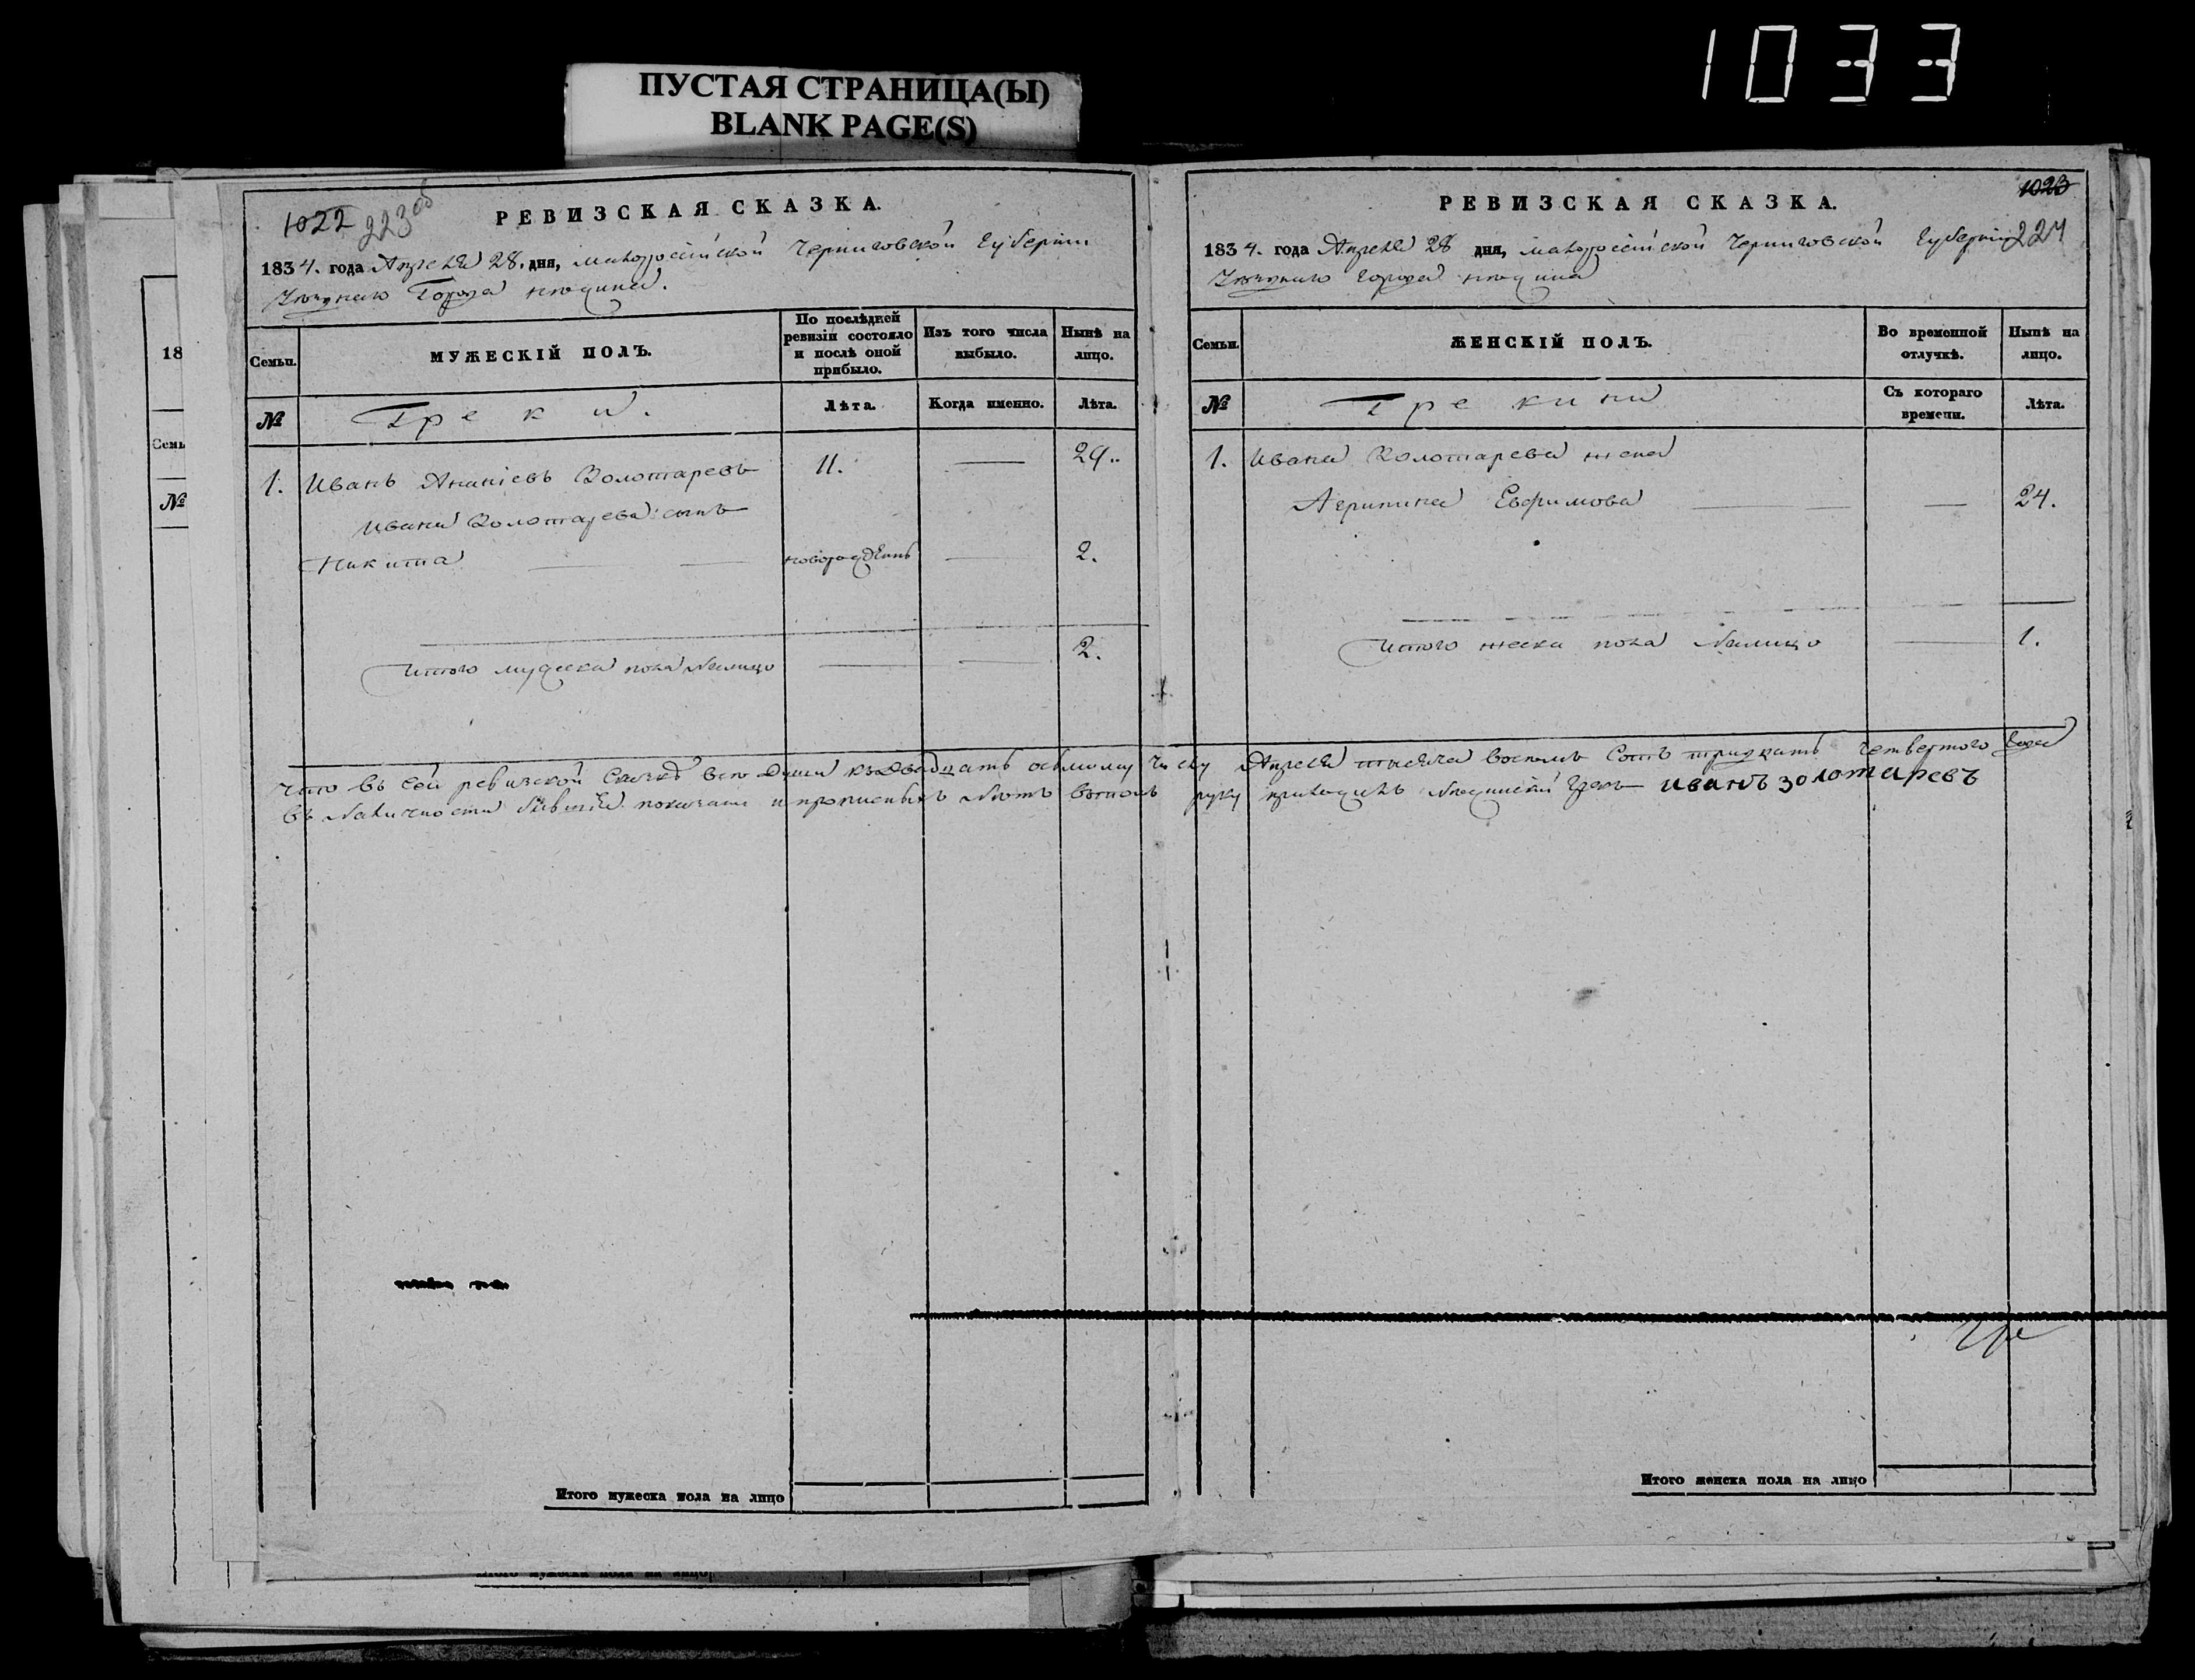 1033
ПУСТАЯ СТРАНИЦА(Ы)
BLANK PAGE(S)
18
Семь
№
1022 223об
РЕВИЗСКАЯ СКАЗКА.
1834. года Апреля 28. дня, малороссійской Черниговской Губерніи
Уезднаго Города Нежина.
Семьи.
МУЖЕСКІЙ ПОЛЪ.
По послѣдней ревизіи состояло и послѣ оной прибыло.
Изъ того числа выбыло.
Нынѣ на лицо.
№
Греки.
Лѣта.
Когда именно.
Лѣта.
1. Иванъ Ананіевъ Золотаревъ 11. — 29..
Ивана Золотарева сынъ
Никита новорожденъ — 2.
Итого мужеска пола налицо — — 2.
Итого мужеска пола на лицо
1023
РЕВИЗСКАЯ СКАЗКА.
1834. года Апреля 28 дня, малороссійской Черниговской Губерніи 224
Уезднаго города Нежина
Семьи.
ЖЕНСКІЙ ПОЛЪ.
Во временной отлучкѣ.
Нынѣ на лицо.
№
Грекини
Съ котораго времени.
Лѣта.
1. Ивана Золотарева жена
Агрипина Евфимова — 24.
Итого женска пола налицо — 1.
Что въ сей ревизской сказкѣ все души къ двадцать осьмому числу Апреля тысяча восемь сотъ тридцать четвертого года
въ наличности бывшіе показаны и прописныхъ нетъ вътомъ руку приложилъ Нежинскій Грекъ иванъ золотаревъ
Итого женска пола на лицо